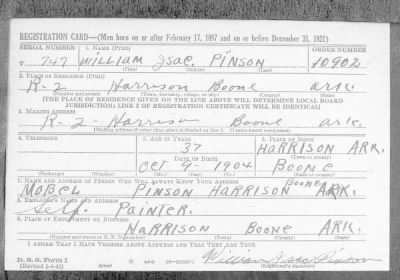 REGISTRATION CARD—(Men born on or after February 17, 1897 and on or before December 31, 1921)
SERIAL NUMBER 1. NAME (Print) ORDER NUMBER
T 747 WILLIAM ISAC PINSON 10902
(First) (Middle) (Last)
2. PLACE OF RESIDENCE (Print)
R-2 Harrison Boone ark.
(Number and street) (Town, township, village, or city) (County) (State)
[THE PLACE OF RESIDENCE GIVEN ON THE LINE ABOVE WILL DETERMINE LOCAL BOARD
JURISDICTION; LINE 2 OF REGISTRATION CERTIFICATE WILL BE IDENTICAL]
3. MAILING ADDRESS
R-2 - Harrison Boone ark.
4. TELEPHONE 5. AGE IN YEARS 6. PLACE OF BIRTH
37 HARRISON ARK.
DATE OF BIRTH (Town or county)
Oct 9 - 1904 BOONE
(Mo.) (Day) (Yr.) (State or country)
7. NAME AND ADDRESS OF PERSON WHO WILL ALWAYS KNOW YOUR ADDRESS
MOBEL PINSON HARRISON BOONE ARK.
8. EMPLOYER'S NAME AND ADDRESS
Self. PAINTER.
9. PLACE OF EMPLOYMENT OR BUSINESS
HARRISON BOONE ARK.
(Number and street or R. F. D. number) (Town) (County) (State)
I AFFIRM THAT I HAVE VERIFIED ABOVE ANSWERS AND THAT THEY ARE TRUE.
D. S. S. Form 1
William Isac Pinson
(Registrant's signature)